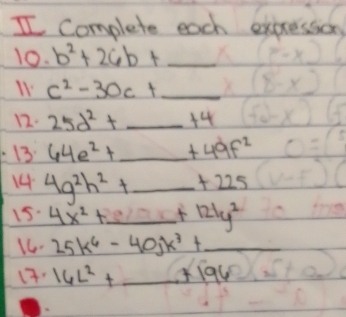 II Complete each expression
10. b² + 26b + ___
11. c² - 30c + ___
12. 25d² + ___ + 4
13. 64e² + ___ + 49f²
14. 4g²h² + ___ + 225
15. 4x² + ___ + 121y²
16. 25k⁶ - 40jk³ + ___
17. 16L² + ___ + 196